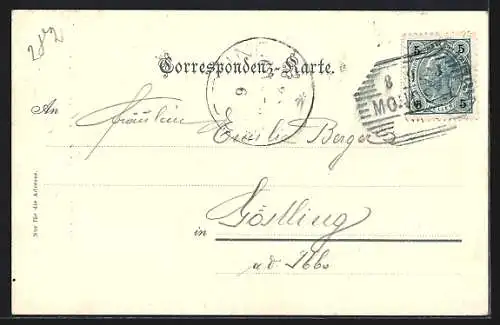 282
Correspondenz-Karte.
An Fräulein
Emilie Berger
in Göstling
a. d. Ybbs
Nur für die Adresse.
5 5
5 5
8
9